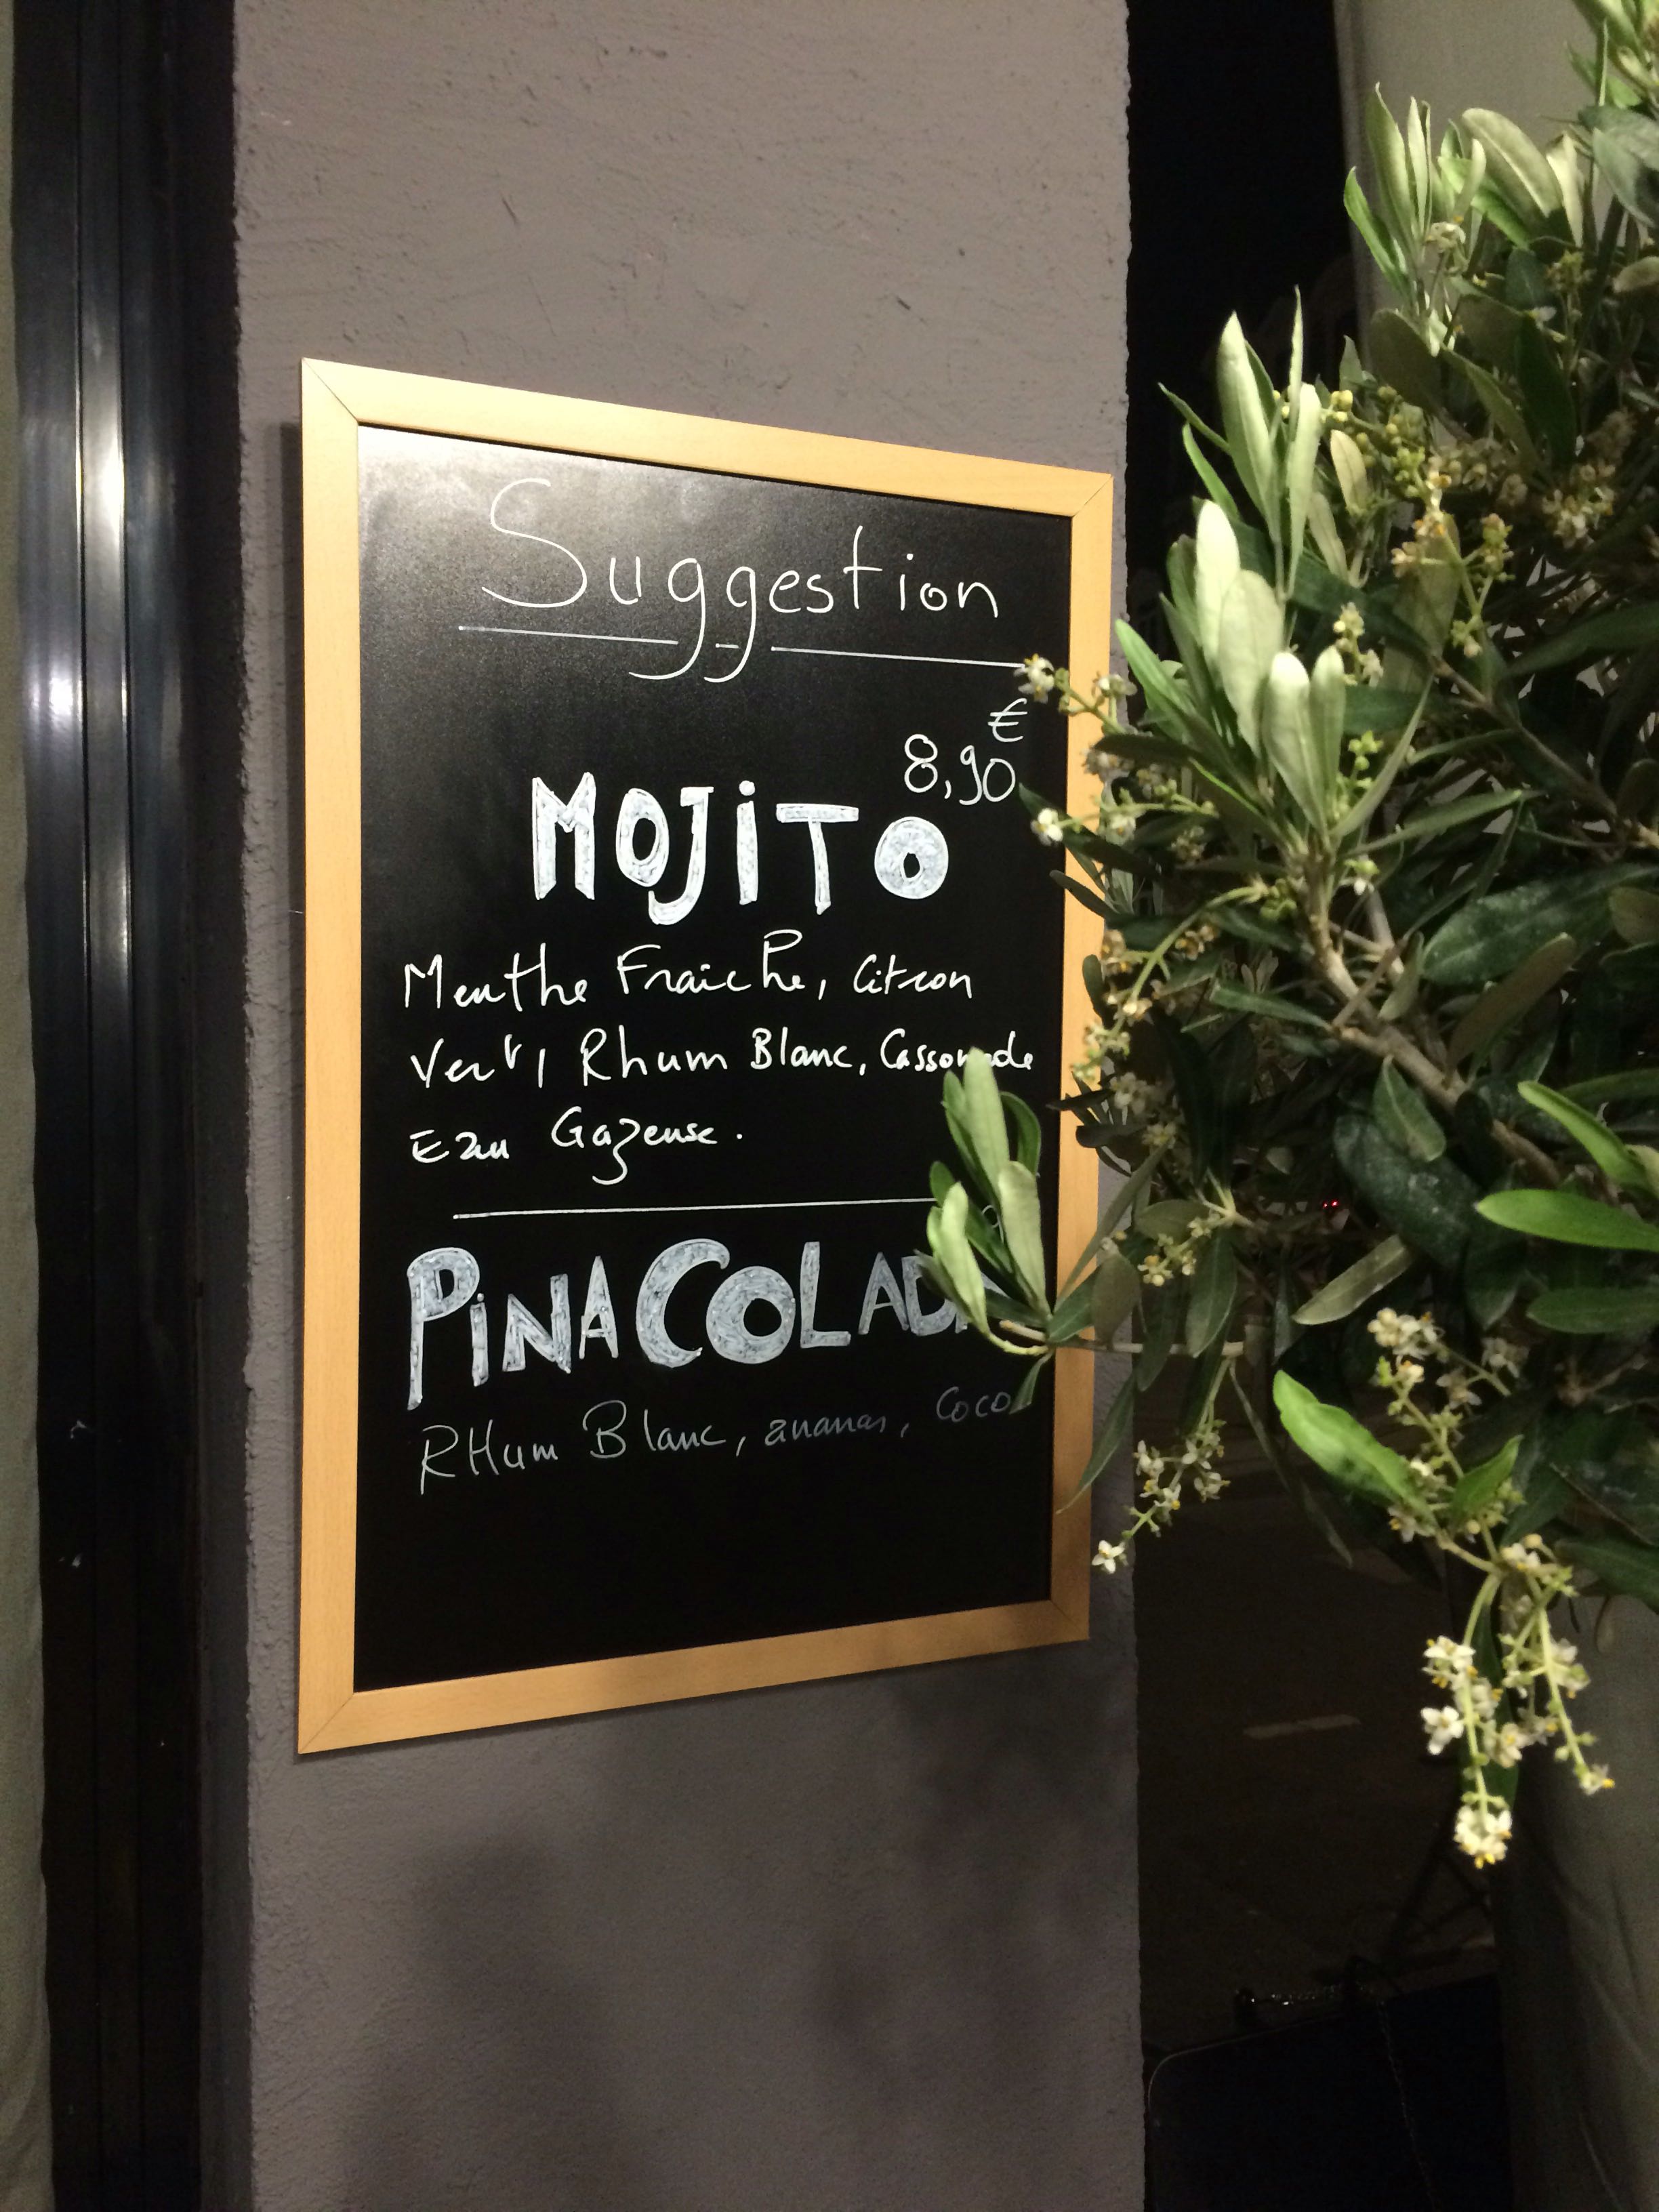 Suggestion
€
8,90
MOJiTO
Menthe Fraiche, Citron
Vert, Rhum Blanc, Cassonade
Eau Gazeuse.
PiNA COLADA
RHum Blanc, ananas, Coco